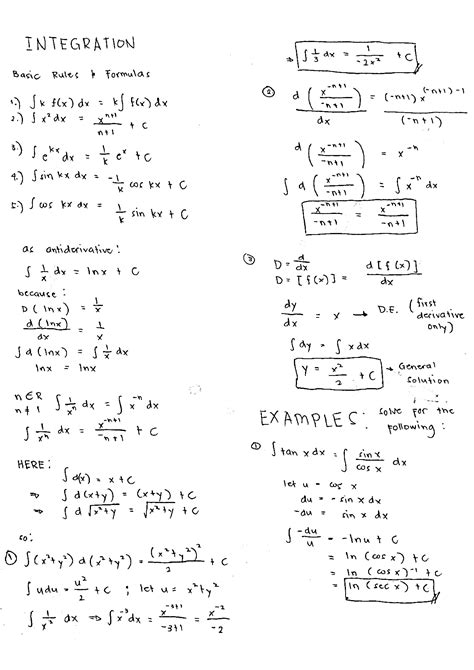 INTEGRATION
Basic Rules & Formulas
1.) ∫ k f(x) dx = k ∫ f(x) dx
2.) ∫ x² dx = x^(n+1)/(n+1) + C
3) ∫ e^(kx) dx = 1/k e^x + C
4.) ∫ sin kx dx = -1/k cos kx + C
5.) ∫ cos kx dx = 1/k sin kx + C
as antiderivative:
∫ 1/x dx = ln x + C
because:
D (ln x) = 1/x
d(ln x)/dx = 1/x
∫ d(ln x) = ∫ 1/x dx
ln x = ln x
n ∈ R
n ≠ 1
∫ 1/x^n dx = ∫ x^(-n) dx
∫ 1/x^n dx = x^(-n+1)/(-n+1) + C
HERE:
∫ d(x) = x + C
⇒ ∫ d(x+y) = (x+y) + C
⇒ ∫ d √(x²+y) = √(x²+y) + C
so:
① ∫ (x²+y²) d(x²+y²) = (x²+y²)²/2 + C
∫ u du = u²/2 + C ; let u = x²+y²
∫ 1/x³ dx ⇒ ∫ x^(-3) dx = x^(-3+1)/(-3+1) = x^(-2)/-2
⇒ ∫ 1/3 dx = 1/(-2x²) + C
② d (x^(-n+1)/(-n+1)) / dx = (-n+1) x^((-n+1)-1) / (-n+1)
d (x^(-n+1)/(-n+1)) = x^(-n)
∫ d (x^(-n+1)/(-n+1)) = ∫ x^(-n) dx
x^(-n+1)/(-n+1) = x^(-n+1)/(-n+1)
③ D = d/dx
D = [f(x)] = d[f(x)]/dx
dy/dx = x → D.E. (first derivative only)
∫ dy = ∫ x dx
y = x²/2 + C → General solution
EXAMPLES: solve for the following:
① ∫ tan x dx = ∫ sin x/cos x dx
let u = cos x
du = - sin x dx
-du = sin x dx
∫ -du/u = -ln u + C
= ln (cos x) + C
= ln (cos x)^-1 + C
= ln (sec x) + C